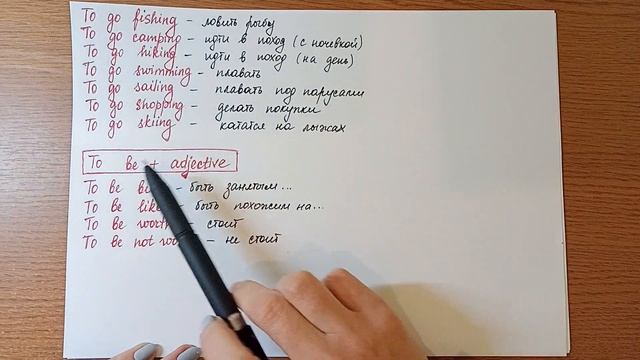 To go fishing - ловить рыбу
To go camping - идти в поход (с ночевкой)
To go hiking - идти в поход (на день)
To go swimming - плавать
To go sailing - плавать под парусами
To go shopping - делать покупки
To go skiing - кататся на лыжах
To be + adjective
To be - быть занятым...
To be - быть похожим на...
To be worth - стоит
To be not - не стоит